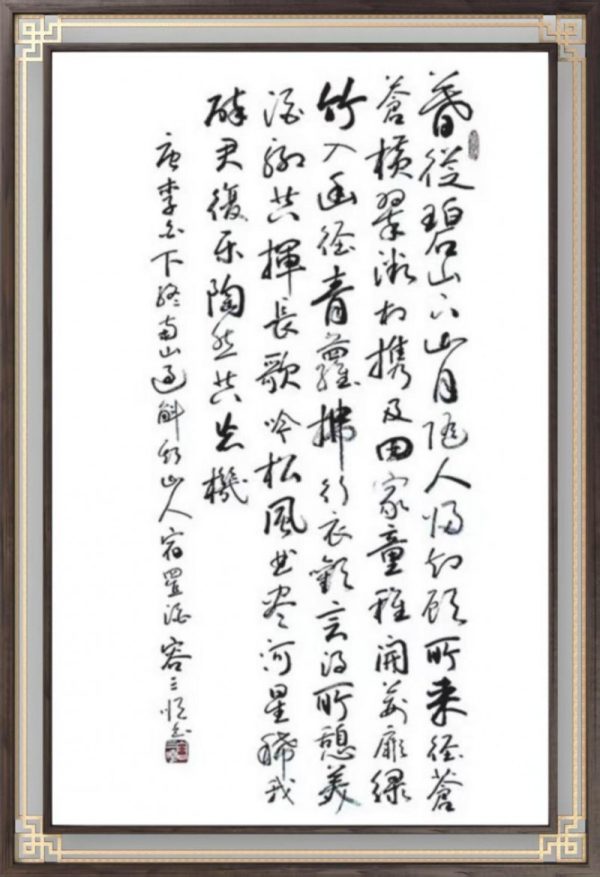 暮從碧山下山月随人归却顾所来徑蒼
蒼橫翠微相携及田家童稚開荆扉緑
竹入幽徑青蘿拂行衣歡言得所憩美
酒聊共揮長歌吟松風曲尽河星稀我
醉君復乐陶然共忘機
唐李白下終南山過斛斯山人宿置酒